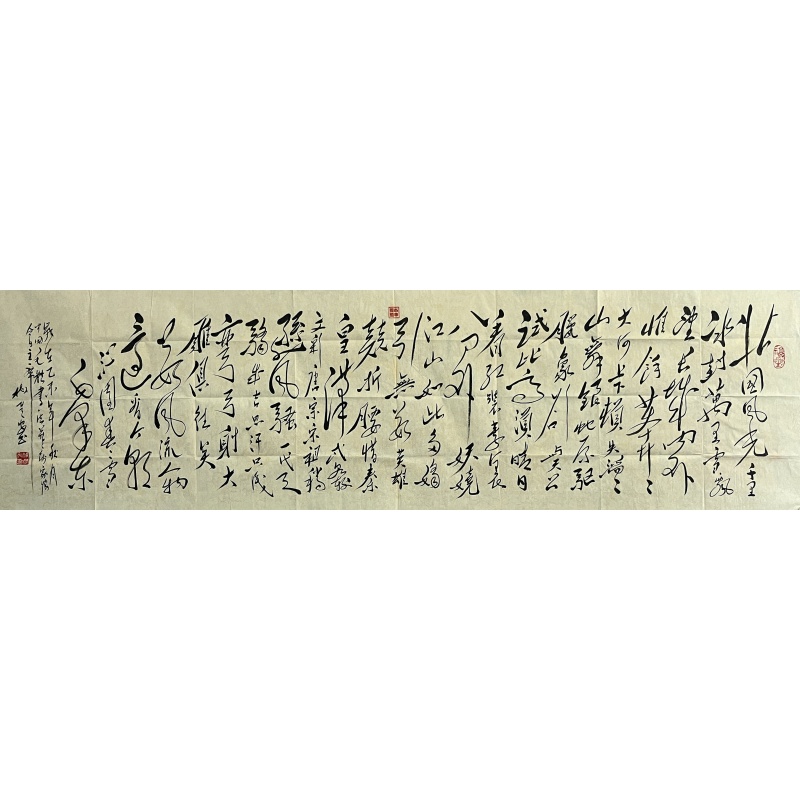 北国风光千里
冰封萬里雪飘
望长城内外
惟馀莽々
大河上下顿失滔々
山舞银蛇原驰
腊象欲与天公
试比高须晴日
看红装素裹
分外妖娆
江山如此多娇
引無数英雄
竞折腰惜秦
皇汉武略输
文采唐宗宋祖稍
逊风骚一代天
骄成吉思汗只识
弯弓射大
雕俱往矣
数风流人物
还看今朝
沁园春雪
毛泽东
歲在乙未年秋月
中国毛体书法